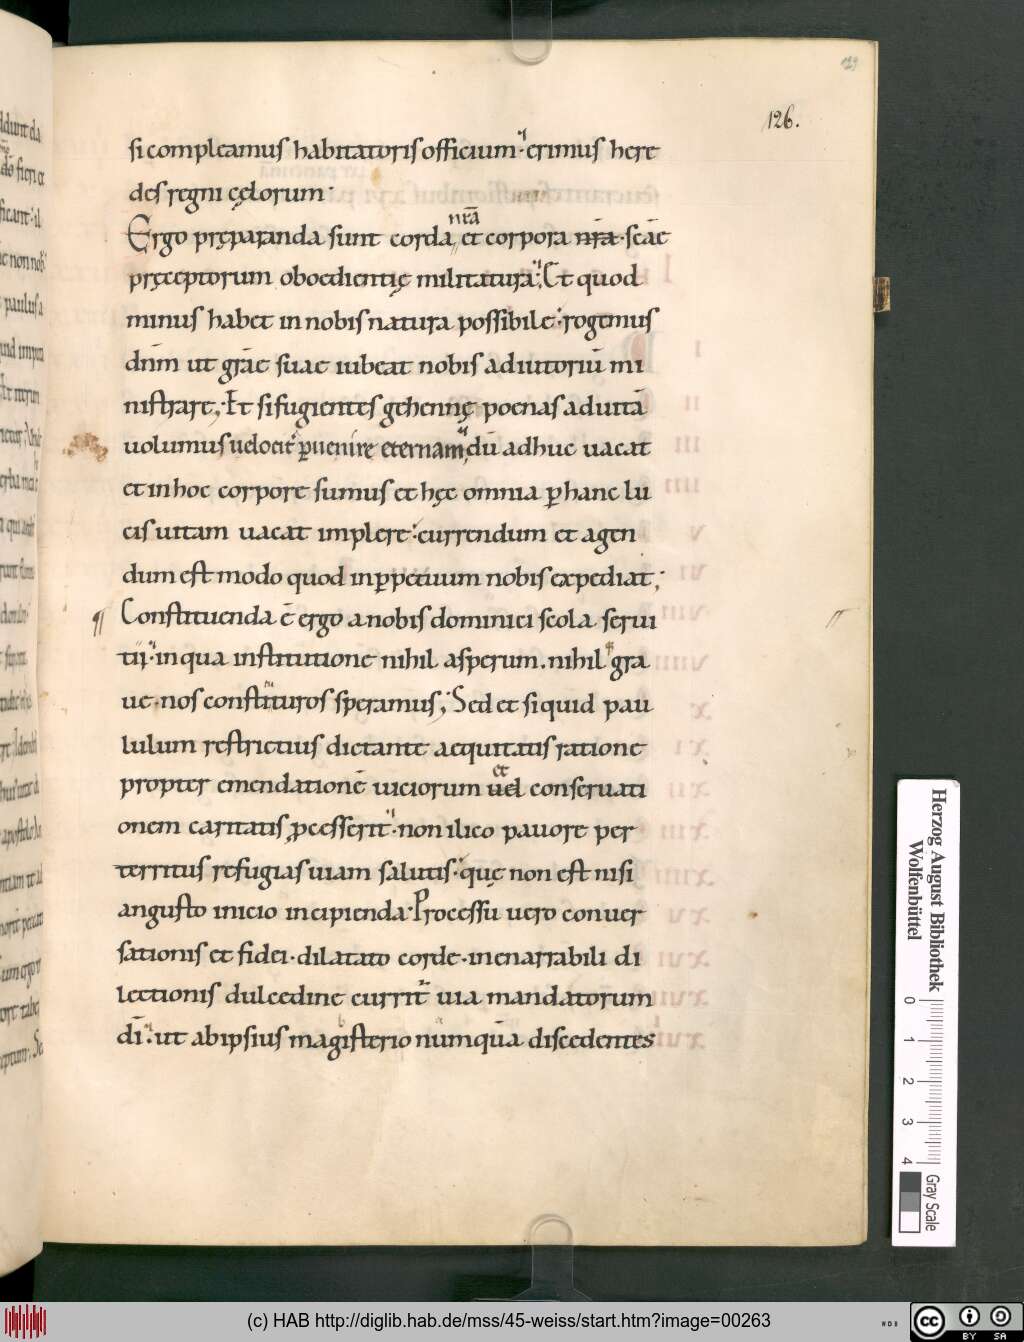 129
126.
si compleamus habitatoris officium· erimus here
des regni cęlorum·
nr̄a
Ergo pręparanda sunt corda, et corpora nr̄a· sc̄ae
pręceptorum oboedientię militatura; Et quod
minus habet in nobis natura possibile· rogemus
dn̄m ut grāe suae iubeat nobis adiutoriū mi
nistrare; Et si fugientes gehennę poenas ad uitā
uolumus uelocit̄ ꝑuenire eternam; dū adhuc uacat
et in hoc corpore sumus et hęc omnia ꝑ hanc lu
cis uitam uacat implere· currendum et agen
dum est modo quod in ꝑpetuum nobis expediat;
¶ Constituenda ē ergo a nobis dominici scola serui
tii· in qua institutione nihil asperum. nihil gra
ue· nos constituros speramus; Sed et si quid pau
lulum restrictius dictante aequitatis ratione
et
propter emendationē uiciorum uel conseruati
onem caritatis pcesserit· non ilico pauore per
territus refugias uiam salutis· quę non est nisi
angusto inicio incipienda· Processu uero conuer
sationis et fidei· dilatato corde· inenarrabili di
lectionis dulcedine currit̄ uia mandatorum
dī· ut ab ipsius magisterio numquā discedentes
Herzog August Bibliothek
Wolfenbüttel
0 1 2 3 4
Gray Scale
(c) HAB http://diglib.hab.de/mss/45-weiss/start.htm?image=00263
WDB
cc BY SA